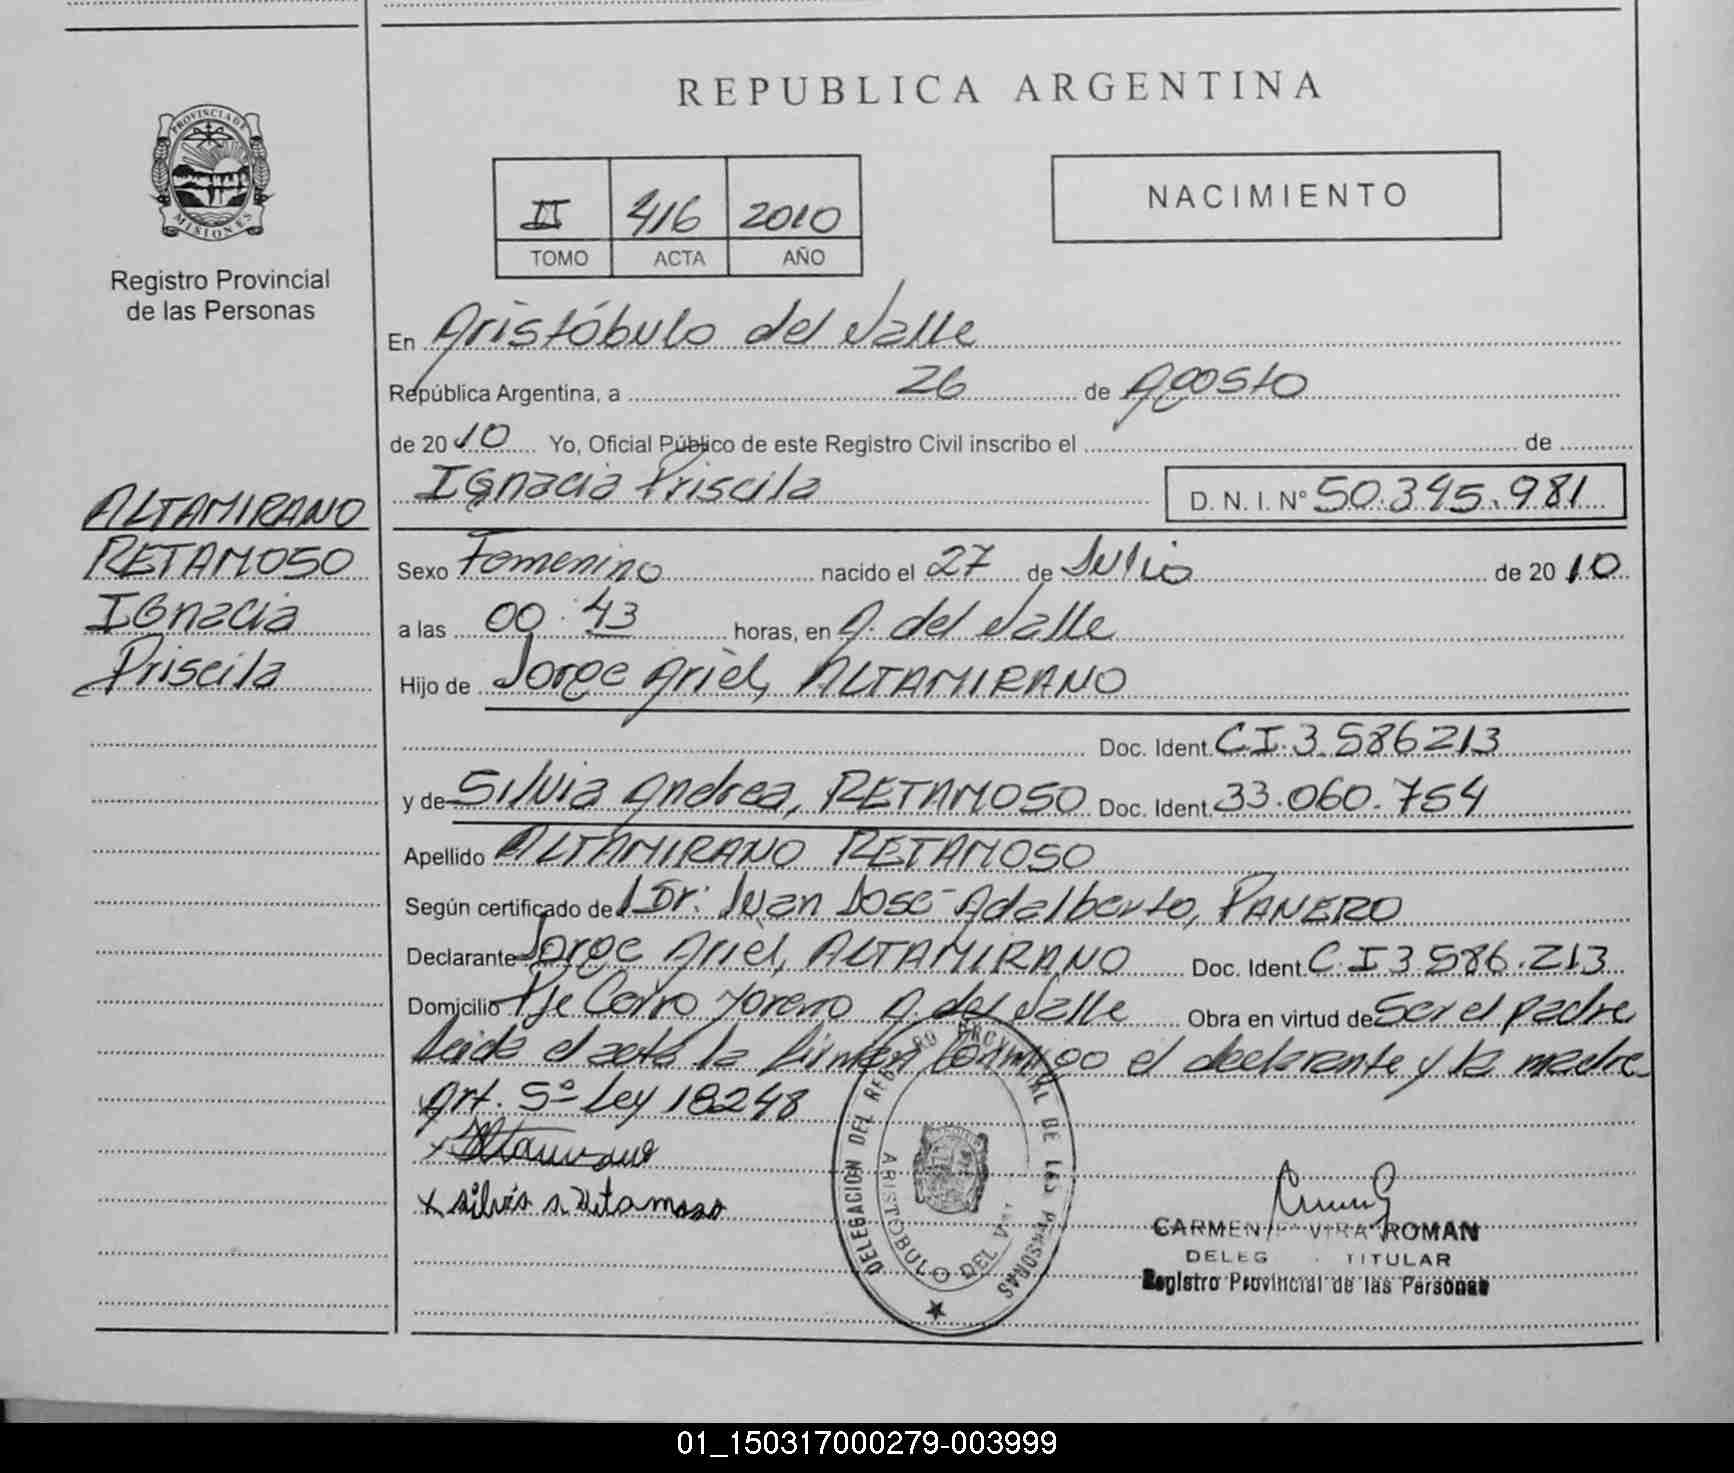 REPUBLICA ARGENTINA
PROVINCIA DE MISIONES
Registro Provincial
de las Personas
II 416 2010
TOMO ACTA AÑO
NACIMIENTO
En Aristóbulo del Valle
República Argentina, a 26 de Agosto
de 2010 Yo, Oficial Público de este Registro Civil inscribo el de
Ignacia Priscila D. N. I. N° 50.345.981
ALTAMIRANO
RETAMOSO
Ignacia
Priscila
Sexo Femenino nacido el 27 de Julio de 2010
a las 00:43 horas, en A. del Valle
Hijo de Jorge Ariel, ALTAMIRANO
Doc. Ident. CI.3.586213
y de Silvia Andrea, RETAMOSO Doc. Ident. 33.060.754
Apellido ALTAMIRANO RETAMOSO
Según certificado de Dr: Juan José Adalberto, PANERO
Declarante Jorge Ariel, ALTAMIRANO Doc. Ident. C.I 3 586.213
Domicilio Pje Cerro Moreno A. del Valle Obra en virtud de Ser el padre
Leida el acta la firman conmigo el declarante y la madre
Art. 5º Ley 18248
x Altamirano
x silvia a Retamoso
DELEGACION DEL REGISTRO PROVINCIAL DE LAS PERSONAS
ARISTOBULO DEL VALLE
CARMEN ROMAN
DELEG TITULAR
Registro Provincial de las Personas
01_150317000279-003999